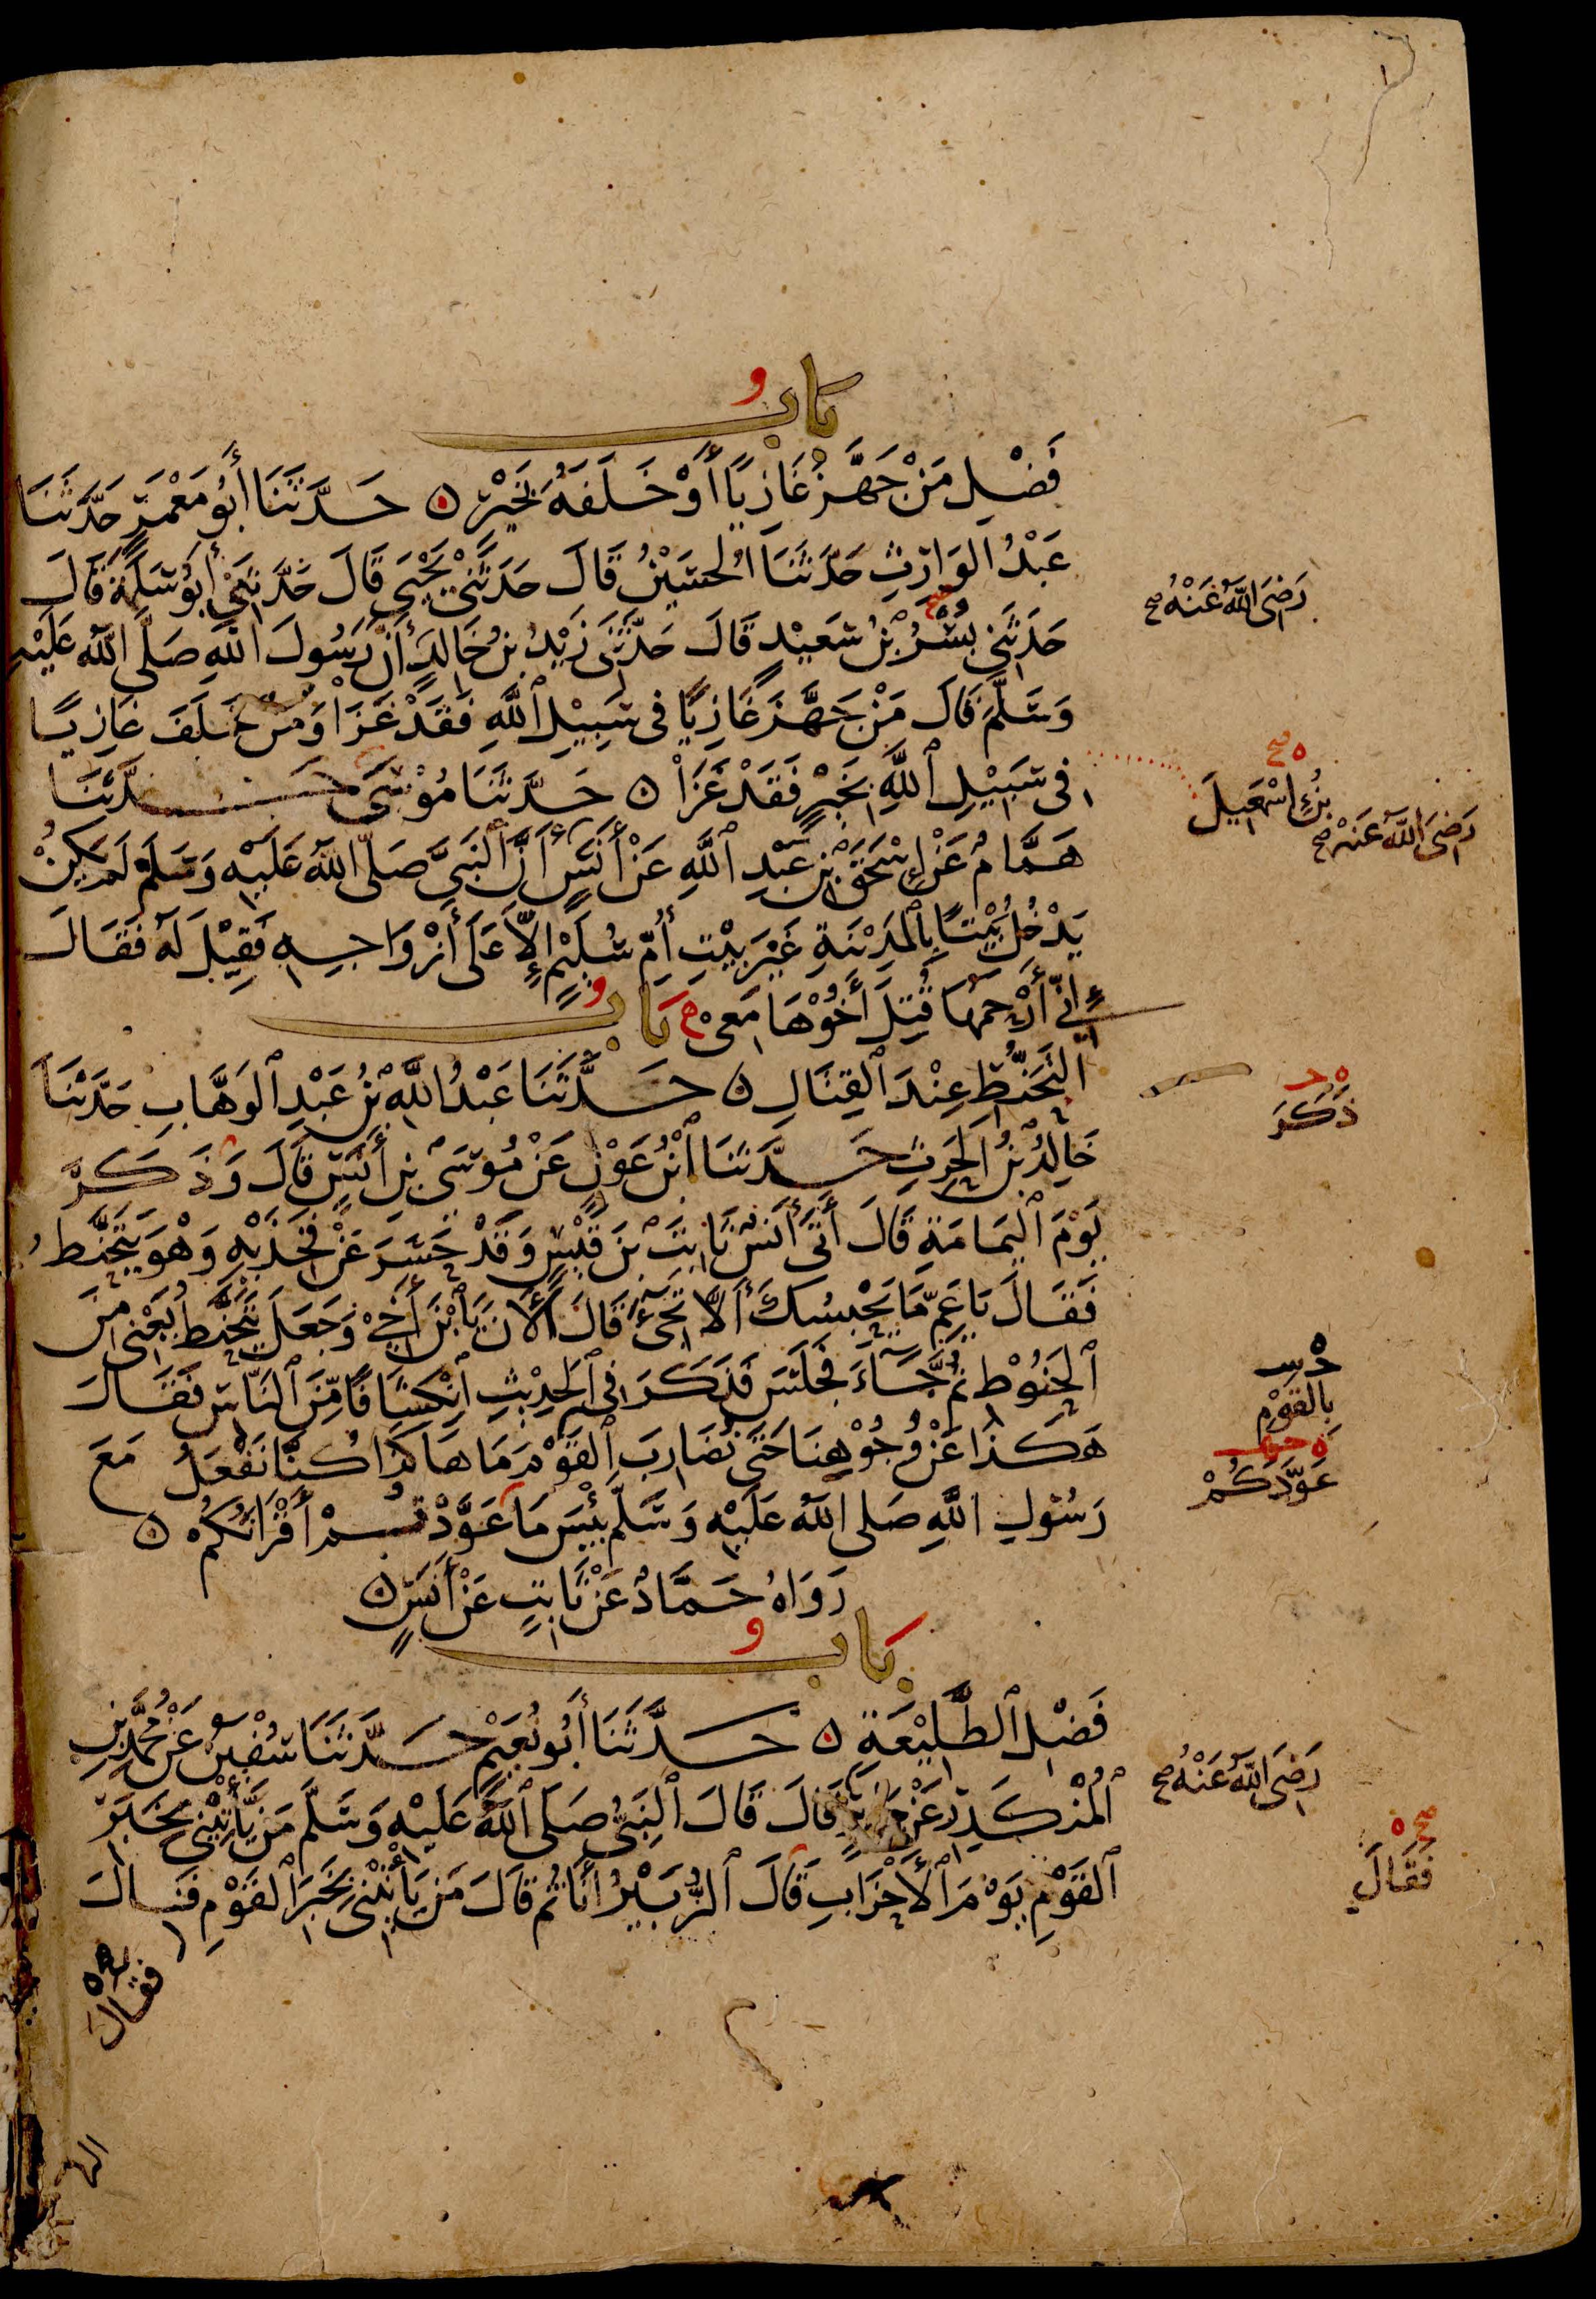 باب
فَضْلِ مَنْ جَهَّزَ غَازِيًا أَوْ خَلَفَهُ بِخَيْرٍ ۝ حَدَّثَنَا أَبُو مَعْمَرٍ حَدَّثَنَا
عَبْدُ الوَارِثِ حَدَّثَنَا الْحُسَيْنُ قَالَ حَدَّثَنِي يَحْيَى قَالَ حَدَّثَنِي أَبُو سَلَمَةَ قَالَ
رَضِيَ اللَّهُ عَنْهُ صح
حَدَّثَنِي بُسْرُ بْنُ سَعِيدٍ قَالَ حَدَّثَنِي زَيْدُ بْنُ خَالِدٍ أَنَّ رَسُولَ اللهِ صَلَّى اللَّهُ عَلَيْهِ
وَسَلَّمَ قَالَ مَنْ جَهَّزَ غَازِيًا فِي سَبِيْلِ اللَّهِ فَقَدْ غَزَا وَمَنْ خَلَفَ غَازِيًا
فِي سَبِيْلِ اللَّهِ بِخَيْرٍ فَقَدْ غَزَا ۝ حَدَّثَنَا مُوْسَى حَدَّثَنَا
ه صح
بْنُ إِسْمَعِيلَ
رَضِيَ اللَّهُ عَنْهُ صح
هَمَّامٌ عَنْ إِسْحَقَ بْنِ عَبْدِ اللَّهِ عَنْ أَنَسٍ أَنَّ النَّبِيَّ صَلَّى اللَّهُ عَلَيْهِ وَسَلَّمَ لَمْ يَكُنْ
يَدْخُلُ بَيْتًا بِالْمَدِيْنَةِ غَيْرَ بَيْتِ أُمِّ سُلَيْمٍ إِلَّا عَلَى أَزْوَاجِهِ فَقِيْلَ لَهُ فَقَالَ
إِنِّي أَرْحَمُهَا قُتِلَ أَخُوْهَا مَعِي ه بَابُ
التَّحَنُّطِ عِنْدَ الْقِتَالِ ۝ حَدَّثَنَا عَبْدُ اللَّهِ بْنُ عَبْدِ الْوَهَّابِ حَدَّثَنَا
ذَكَرَ
خَالِدُ بْنُ الْحَرِثِ حَدَّثَنَا ابْنُ عَوْنٍ عَنْ مُوْسَى بْنِ أَنَسٍ قَالَ وَذَكَرَ
يَوْمَ الْيَمَامَةِ قَالَ أَتَى أَنَسٌ ثَابِتَ بْنَ قَيْسٍ وَقَدْ حَسَرَ عَنْ فَخِذَيْهِ وَهْوَ يَتَحَنَّطُ
فَقَالَ يَا عَمِّ مَا يَحْبِسُكَ أَلَّا تَجِيْءَ قَالَ الْآنَ يَا ابْنَ أَخِيْ وَجَعَلَ يَتَحَنَّطُ يَعْنِي مِنَ
الْحَنُوْطِ ثُمَّ جَاءَ فَجَلَسَ فَذَكَرَ فِي الْحَدِيْثِ انْكِشَافًا مِّنَ النَّاسِ فَقَالَ
هَكَذَا عَنْ وُجُوْهِنَا حَتَّى نُضَارِبَ الْقَوْمَ مَا هَكَذَا كُنَّا نَفْعَلُ مَعَ
بِالقَوْمِ
عَوَّدَكُمْ
رَسُوْلِ اللَّهِ صَلَّى اللَّهُ عَلَيْهِ وَسَلَّمَ بِئْسَ مَا عَوَّدْتُمْ أَقْرَانَكُمْ ۝
رَوَاهُ حَمَّادٌ عَنْ ثَابِتٍ عَنْ أَنَسٍ ۝
بَابُ
فَضْلِ الطَّلِيْعَةِ ۝ حَدَّثَنَا أَبُو نُعَيْمٍ حَدَّثَنَا سُفْينُ عَنْ مُحَمَّدِ بْنِ
الْمُنْكَدِرِ عَنْ جَابِرٍ قَالَ قَالَ النَّبِيُّ صَلَّى اللَّهُ عَلَيْهِ وَسَلَّمَ مَنْ يَّأْتِيْنِي بِخَبَرِ
رَضِيَ اللَّهُ عَنْهُ صح
الْقَوْمِ يَوْمَ الْأَحْزَابِ قَالَ الزُّبَيْرُ أَنَا ثُمَّ قَالَ مَنْ يَأْتِيْنِي بِخَبَرِ الْقَوْمِ فَقَالَ
صح ه
فَقَالَ
فقال